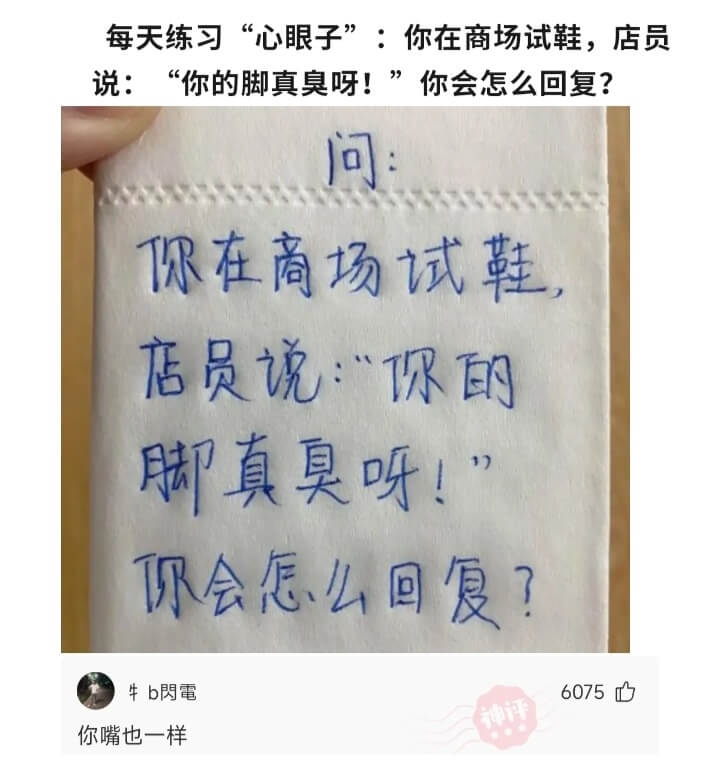 每天练习“心眼子”：你在商场试鞋，店员
说：“你的脚真臭呀！”你会怎么回复？
问：
你在商场试鞋，
店员说：“你的
脚真臭呀！”
你会怎么回复？
牜b閃電
6075
神评
你嘴也一样